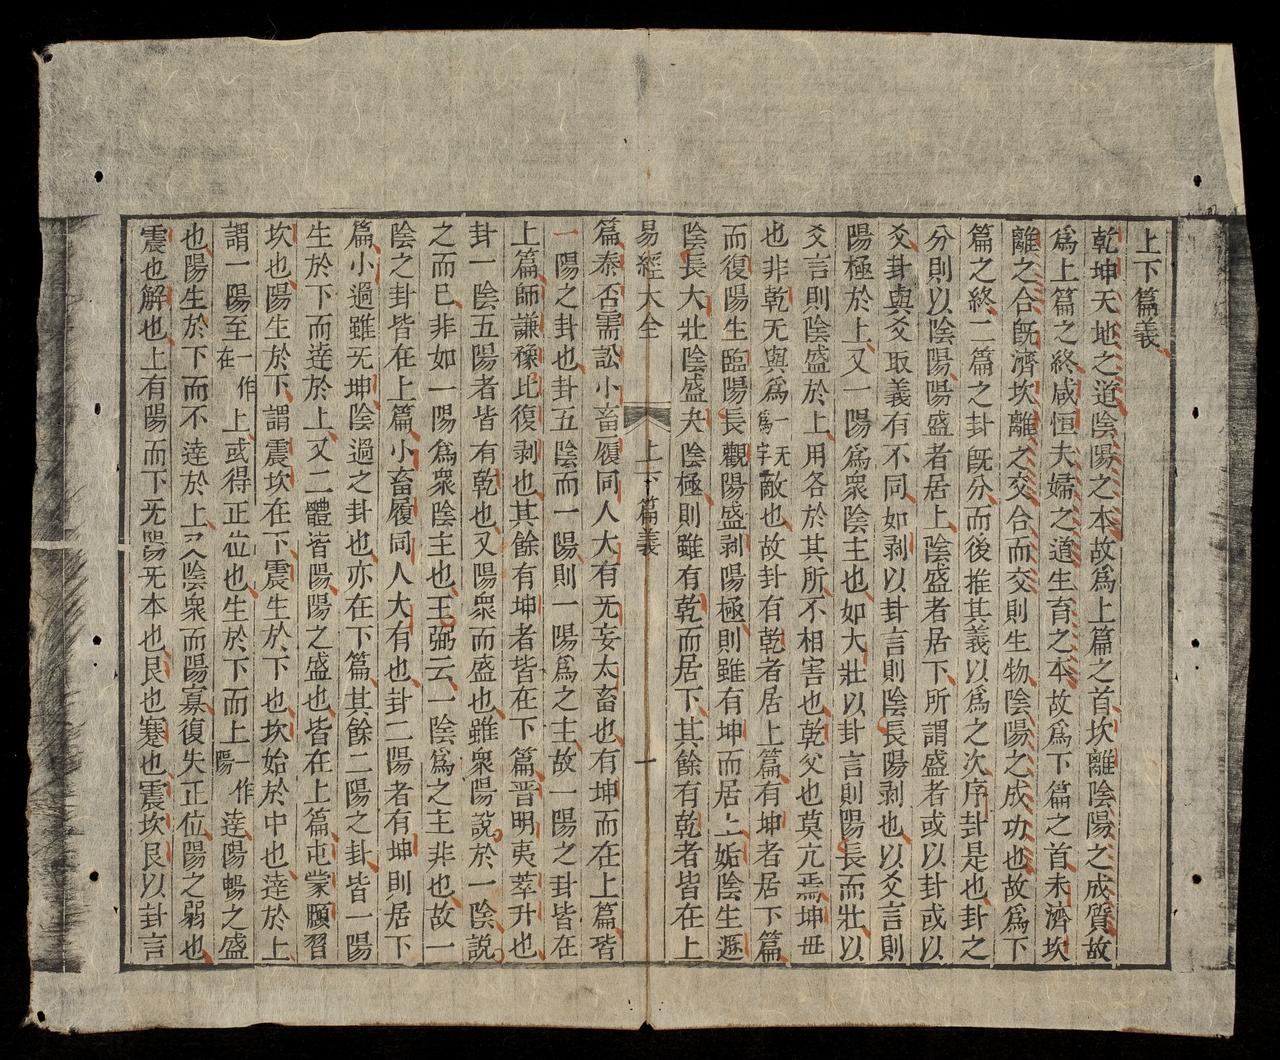 上下篇義
乾坤天地之道陰陽之本故爲上篇之首坎離陰陽之成質故
爲上篇之終咸恒夫婦之道生育之本故爲下篇之首未濟坎
離之合旣濟坎離之交合而交則生物陰陽之成功也故爲下
篇之終二篇之卦旣分而後推其義以爲之次序卦是也卦之
分則以陰陽陽盛者居上陰盛者居下所謂盛者或以卦或以
爻卦與爻取義有不同如剥以卦言則陰長陽剥也以爻言則
陽極於上又一陽爲衆陰主也如大壯以卦言則陽長而壯以
爻言則陰盛於上用各於其所不相害也乾父也莫亢焉坤毋
也非乾无與爲一无爲字敵也故卦有乾者居上篇有坤者居下篇
而復陽生臨陽長觀陽盛剥陽極則雖有坤而居上姤陰生遯
陰長大壯陰盛夬陰極則雖有乾而居下其餘有乾者皆在上
易經大全 上下篇義 一
篇泰否需訟小畜履同人大有无妄太畜也有坤而在上篇皆
一陽之卦也卦五陰而一陽則一陽爲之主故一陽之卦皆在
上篇師謙豫比復剥也其餘有坤者皆在下篇晋明夷萃升也
卦一陰五陽者皆有乾也又陽衆而盛也雖衆陽說於一陰說
之而已非如一陽爲衆陰主也王弼云一陰爲之主非也故一
陰之卦皆在上篇小畜履同人大有也卦二陽者有坤則居下
篇小過雖无坤陰過之卦也亦在下篇其餘二陽之卦皆一陽
生於下而達於上又二體皆陽陽之盛也皆在上篇屯蒙頤習
坎也陽生於下謂震坎在下震生於下也坎始於中也達於上
謂一陽至一作在上或得正位也生於下而上一作陽達陽暢之盛
也陽生於下而不達於上又陰衆而陽寡復失正位陽之弱也
震也解也上有陽而下无陽无本也艮也蹇也震坎艮以卦言